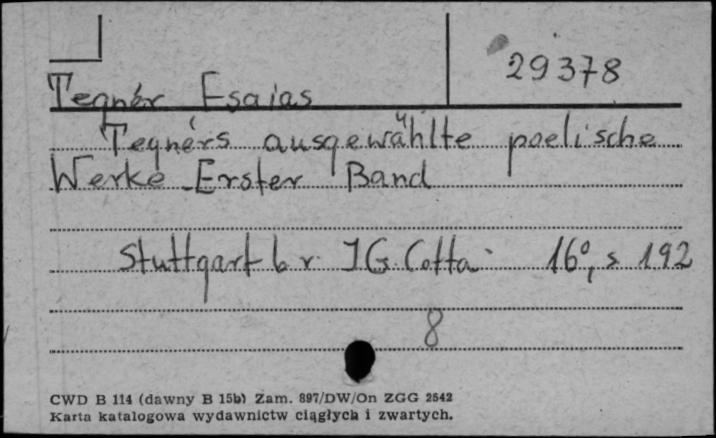 29378
Tegnér Esaias
Tegnérs ausgewählte poelische
Werke Erster Band
Stuttgart b r. J G. Cotta 16°, s 192
8
CWD B 114 (dawny B 15b) Zam. 897/DW/On ZGG 2542
Karta katalogowa wydawnictw ciągłych i zwartych.